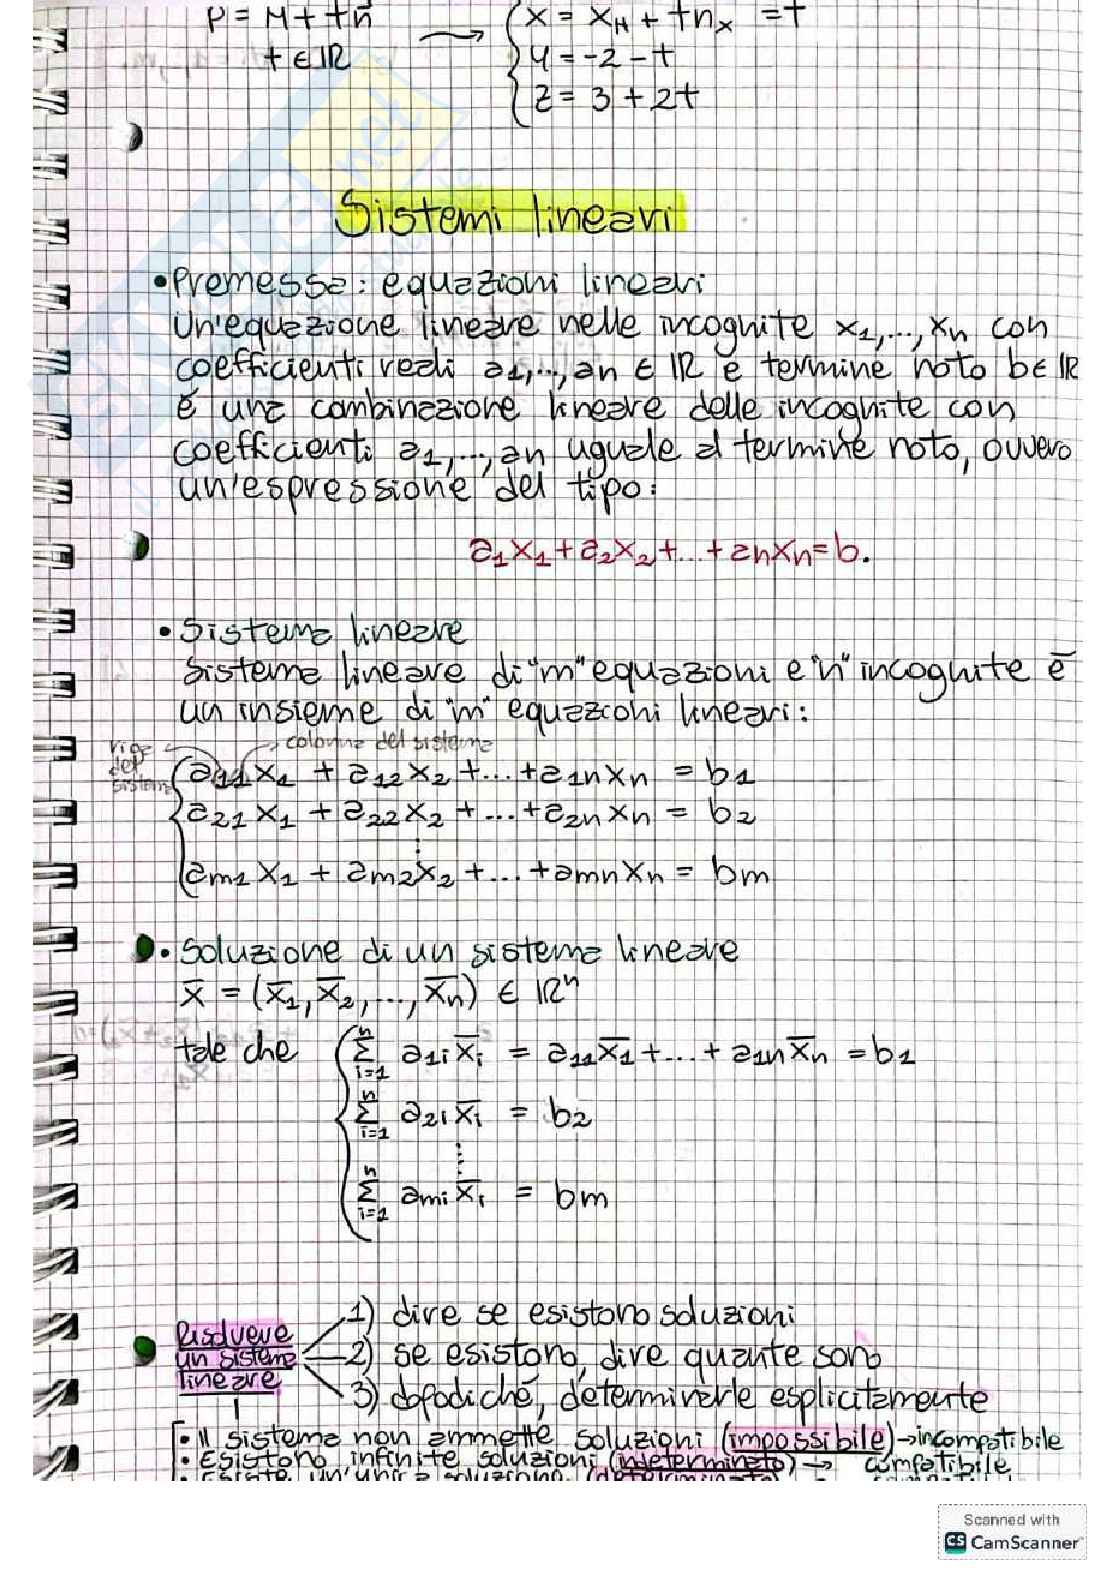 P = M + tn̄ → { x = x_M + tn_x = t
t ∈ ℝ y = -2 - t
z = 3 + 2t
Sistemi lineari
• Premessa: equazioni lineari
Un'equazione lineare nelle incognite x₁,...,xn con
coefficienti reali a₁,..,an ∈ ℝ e termine noto b ∈ ℝ
è una combinazione lineare delle incognite con
coefficienti a₁,...,an uguale al termine noto, ovvero
un'espressione del tipo:
a₁x₁ + a₂x₂ + ... + anxn = b.
• Sistema lineare
Sistema lineare di "m" equazioni e "n" incognite è
un insieme di "m" equazioni lineari:
riga del sistema
colonna del sistema
a₁₁x₁ + a₁₂x₂ + ... + a₁nxn = b₁
a₂₁x₁ + a₂₂x₂ + ... + a₂nxn = b₂
⋮
am₁x₁ + am₂x₂ + ... + amnxn = bm
• Soluzione di un sistema lineare
x̄ = (x̄₁, x̄₂, ..., x̄n) ∈ ℝⁿ
tale che { Σ_{i=1}^{n} a₁ᵢx̄ᵢ = a₁₁x̄₁ + ... + a₁nx̄n = b₁
Σ_{i=1}^{n} a₂ᵢx̄ᵢ = b₂
⋮
Σ_{i=1}^{n} amᵢx̄ᵢ = bm
Risolvere
un sistema
lineare
1) dire se esistono soluzioni
2) se esistono, dire quante sono
3) dopodiché, determinarle esplicitamente
• Il sistema non ammette soluzioni (impossibile) → incompatibile
• Esistono infinite soluzioni (indeterminato) → compatibile
• Esiste un'unica soluzione (determinato)
Scanned with
CS CamScanner